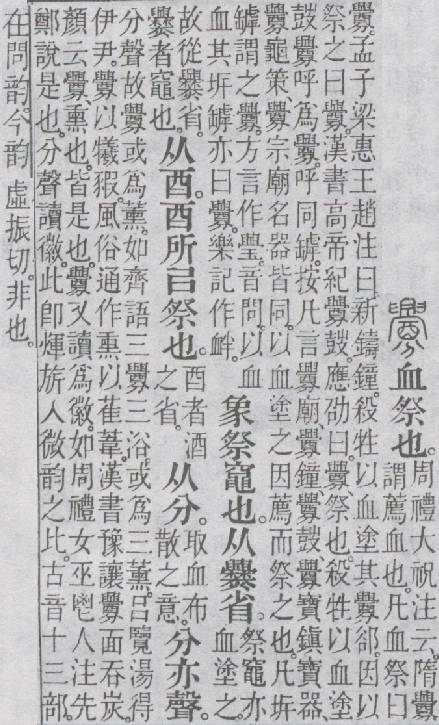 釁血祭也。周禮大祝注云。隋釁
謂薦血也。凡血祭曰
釁。孟子梁惠王趙注曰。新鑄鐘。殺牲以血塗其釁郤。因以
祭之曰釁。漢書高帝紀釁鼓。應劭曰。釁、祭也。殺牲以血塗
鼓釁呼爲釁。呼同罅。按凡言釁廟、釁鐘、釁鼓、釁寶鎮寶器、
釁龜策、釁宗廟名器皆同。以血塗之。因薦而祭之也。凡坼
罅謂之釁。方言作璺。音問。以血
血其坼罅亦曰釁。樂記作衅。
象祭竈也。从爨省。祭竈亦
血塗之。
故從爨省。
爨者竈也。
从酉。酉所㠯祭也。酉者酒
之省。
从分。取血布
散之意。
分亦聲。
分聲故釁或爲薰。如齊語三釁三浴。或爲三薰。呂覽湯得
伊尹。釁以犧豭。風俗通作熏以萑葦。漢書豫讓釁面吞炭。
顏云。釁、熏也。皆是也。釁又讀爲徽。如周禮女巫鬯人注先
鄭說是也。分聲讀徽。此卽煇旂人微韵之比。古音十三部。
在問韵。今韵虛振切。非也。